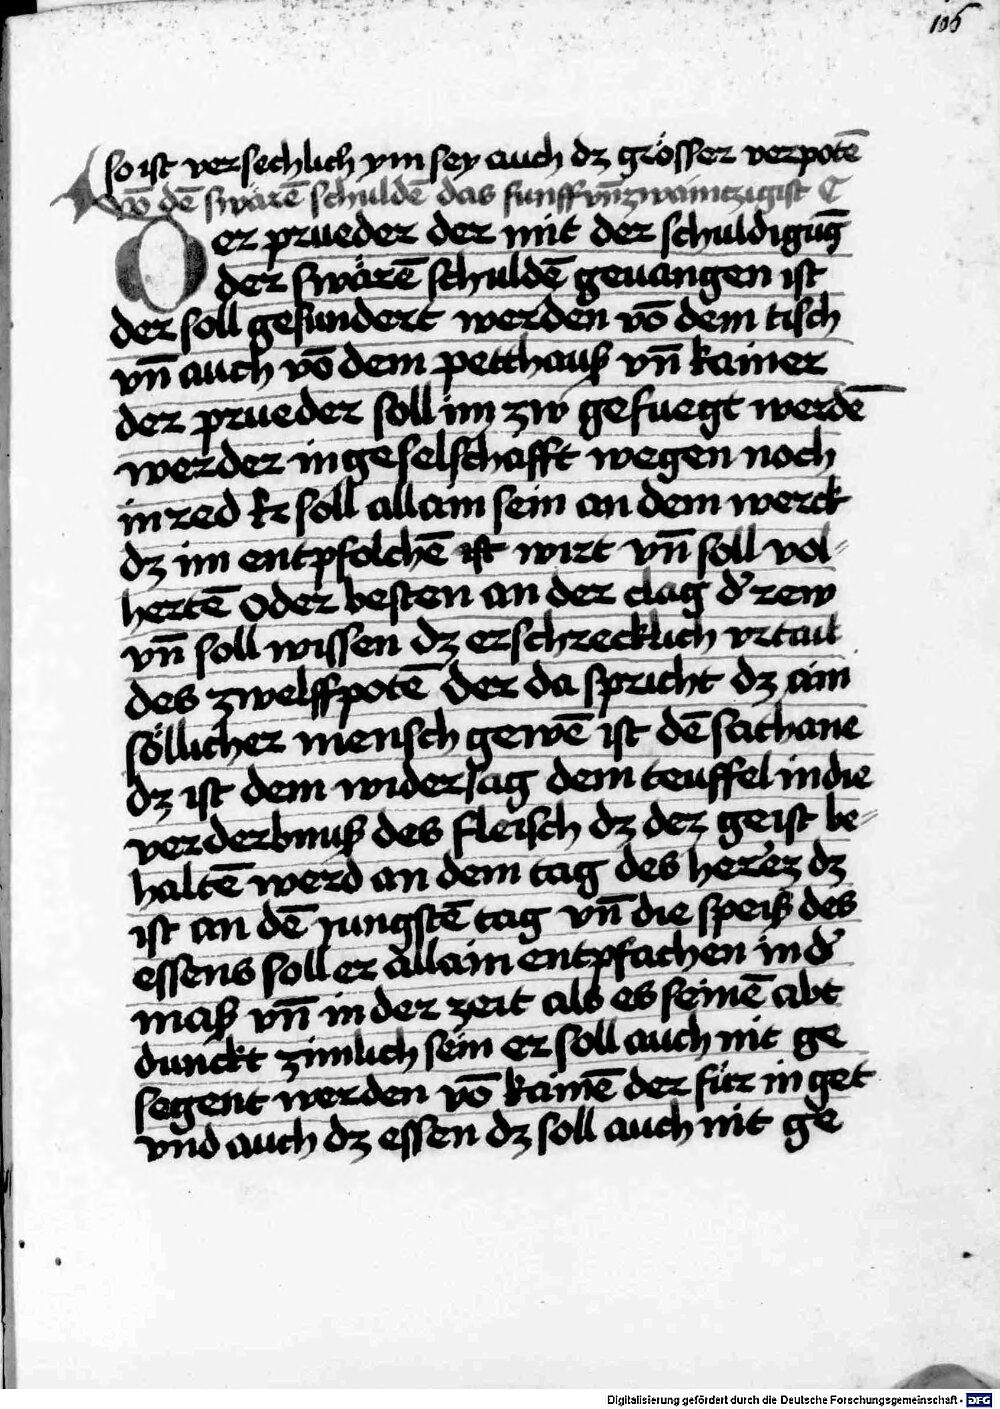 106
so ist versechlich ym sey auch dz grösser verpotē
Vō dē swärē schuldē das funffvn̄zwaintzigist C
Der prueder der mit der schuldigūg
der swärē schuldē geuangen ist
der soll gesundert werden vō dem tisch
vn̄ auch vō dem petthauß vn̄ kainer
der prueder soll im zw gefuegt werdē
werder in geselschafft wegen noch
in red Er soll allain sein an dem werck
dz im entpfolchē ist wirt vn̄ soll vol-
hertē oder besten an der clag d' rew
vn̄ soll wissen dz erschrecklich vrtail
des zwelffpotē der da spricht dz ain
söllicher mensch gewē ist dē sathane
dz ist dem widersag dem teuffel in die
verderbnuß des fleisch dz der geist be-
haltē werd an dem tag des herrez dz
ist an dē jungstē tag vn̄ die speiß des
essens soll er allain entpfachen in d'
maß vn̄ in der zeit als es seinē abt
dunckt zimlich sein er soll auch nit ge
segent werden vō kainē der für in get
vnd auch dz essen dz soll auch nit ge
Digitalisierung gefördert durch die Deutsche Forschungsgemeinschaft - DFG